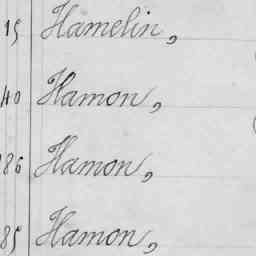 15 Hamelin,
40 Hamon,
86 Hamon,
85 Hamon,